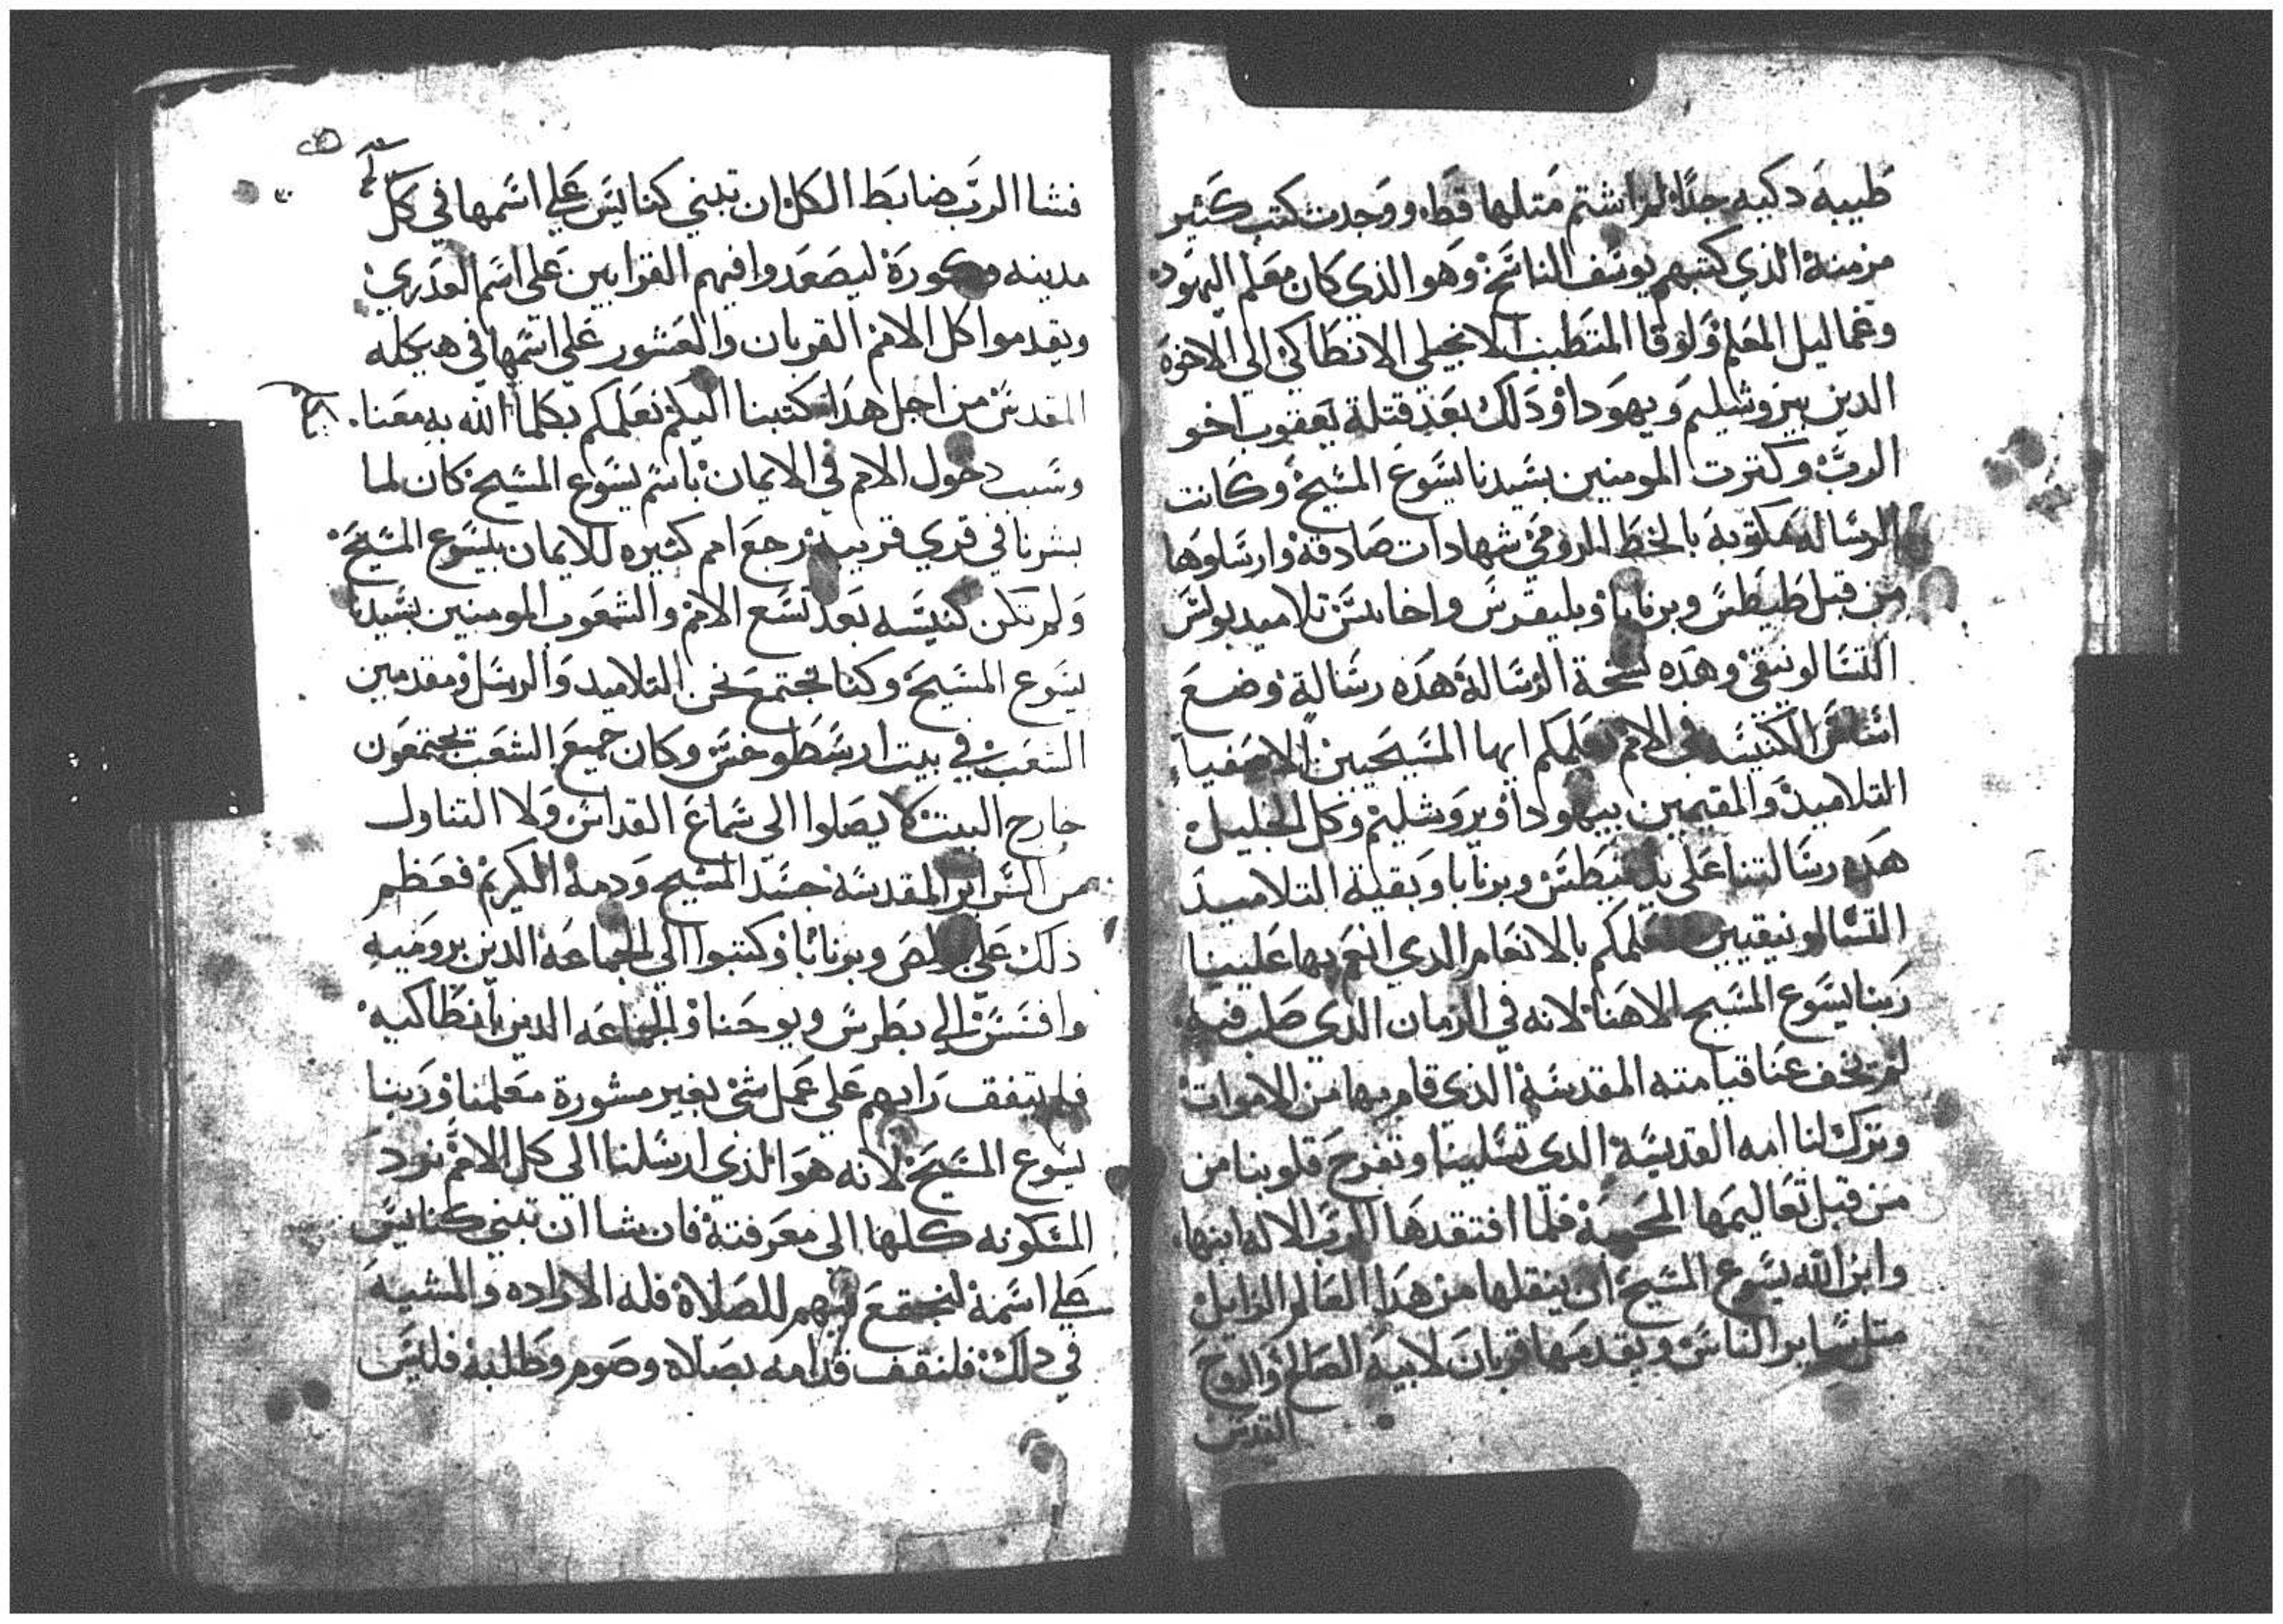 طيبه دكيه جدًا لم اشتم متلها قط ووجدت كتب كثير
مزمنة الذي كتبهم يوسف الناسخ وهو الذي كان معلم اليهود
وغماليل المعلم ولوقا المتطبب الانجيلي الانطاكي الي الاخوة
الدين بيروشليم ويهودا ودلك بعد قتلة يعقوب اخو
الرب وكترت المومنين بسيدنا يسوع المسيح وكانت
الرساله مكتوبة بالخط الرومي شهادات صادقة وارسلوها
من قبل طيطس وبرنابا وبليقرس واخايس تلاميد بولس
التسالونيقي وهده نسخة الرسالة هده رسالة وضع
اساس الكنيسه في الامم نعلمكم ايها المسيحيين الاصفيا
التلاميد والمقيمين بيهودا ويروشليم وكل الجليل
هده رسالتنا علي يد طيطس وبرنابا وبقية التلاميد
التسالونيقيين نعلمكم بالانعام الدي انعم بها علينا
ربنا يسوع المسيح الاهنا لانه في الزمان الدي صلب فيه
لم تخف عنا قيامته المقدسة الذي قام بها من الاموات
وترك لنا امه القديسة الدي تسلينا وتفرح قلوبنا من
من قبل تعاليمها المحيية فلما افتقدها الرب الاله ابنها
وابن الله يسوع المسيح ان ينقلها من هدا العالم الزايل
متل ساير الناس ويقدمها قربان لابيه الصالح والروح
القدس
فشا الرب ضابط الكل ان تبني كنايس علي اسمها في كل
مدينه وكورة ليصعدوا فيهم القرابين علي اسم العدري
ويقدموا كل الامم القربان والعشور علي اسمها في هيكله
المقدس من اجل هدا كتبنا اليكم نعلمكم بكلما الله به معنا
وسبب دخول الامم في الايمان باسم يسوع المسيح كان لما
بشرنا في قري قريبة رجع امم كثيره للايمان بيسوع المسيح
ولم تكن كنيسه بعد تسع الامم والشعوب المومنين بسيدنا
يسوع المسيح وكنا نجتمع نحن التلاميد والرسل ومقدمين
الشعب في بيت ارسطوخس وكان جميع الشعب يجتمعون
خارج البيت لا يصلوا الي سماع القداس ولا التناول
من السراير المقدسة جسد المسيح ودمة الكريم فعظم
ذلك علي بولص وبرنابا وكتبوا الي الجماعه الدين برومية
وافسس الي بطرس ويوحنا والجماعه الدين بانطاكيه
فلم يتفق رايهم علي عمل شي بغير مشورة معلمنا وربنا
يسوع المسيح لانه هو الذي ارسلنا الي كل الامم نرد
المسكونه كلها الي معرفتة فان شا ان تبني كنايس
علي اسمة لنجتمع فيهم للصلاة فله الاراده والمشيه
في دلك فلنقف قدامه بصلاه وصوم وطلبة فليس